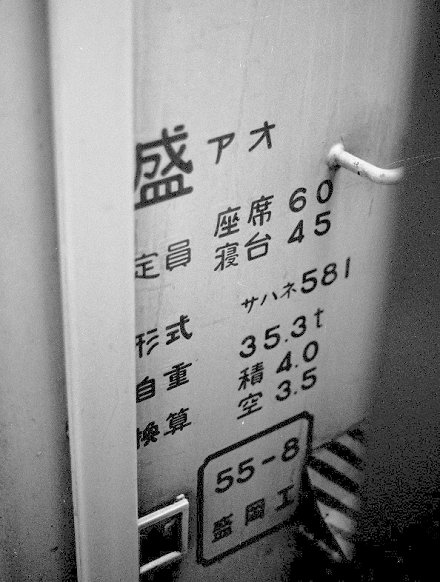 盛アオ
定員 座席 60
寝台 45
形式 サハネ581
自重 35.3t
換算 積 4.0
空 3.5
55-8
盛岡工